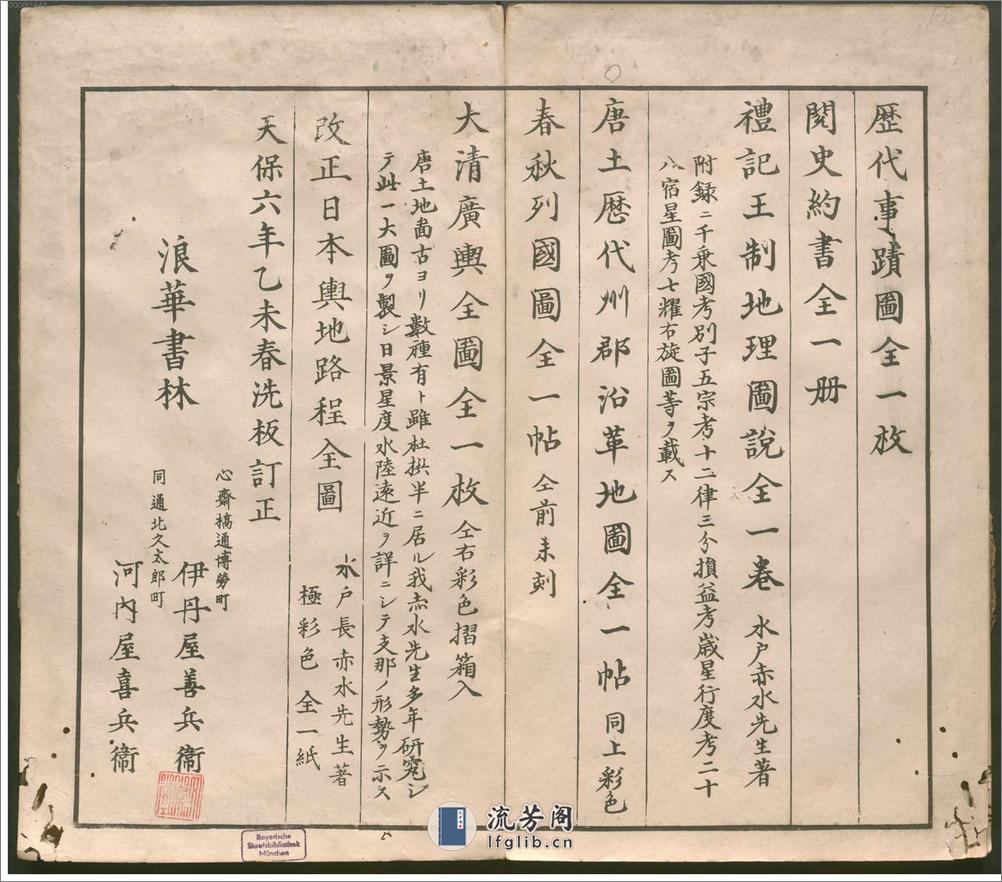 歴代事蹟圖全一枚
閲史約書全一册
禮記王制地理圖說全一卷 水戸赤水先生著
附録ニ千乘國考別子五宗考十二律三分損益考歳星行度考二十
八宿星圖考七耀右旋圖等ヲ載ス
唐土歴代州郡沿革地圖全一帖 同上彩色
春秋列國圖全一帖 仝前未刻
大清廣輿全圖全一枚 仝右彩色摺箱入
唐土地啚古ヨリ數種有ト雖杜撰半ニ居ル我赤水先生多年研究シ
テ此一大圖ヲ製シ日景星度水陸遠近ヲ詳ニシテ支那ノ形勢ヲ示ス
改正日本輿地路程全圖
水戸長赤水先生著
極彩色 全一紙
天保六年乙未春洗板訂正
浪華書林
心齋橋通博勞町
伊丹屋善兵衞
同通北久太郎町
河内屋喜兵衞
Bayerische
Staatsbibliothek
München
流芳阁
lfglib.cn